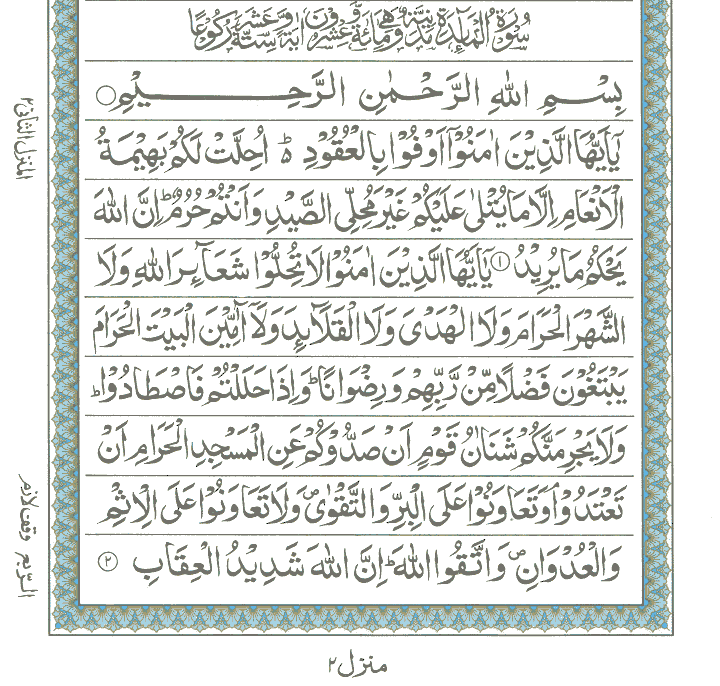 سُوْرَةُ الْمَآئِدَةِ مَدَنِيَّةٌ وَّهِيَ مِائَةٌ وَّعِشْرُوْنَ اٰيَةً وَّسِتَّةَ عَشَرَ رُكُوْعًا
بِسْمِ اللهِ الرَّحْمٰنِ الرَّحِيْمِ ○
يٰۤاَيُّهَا الَّذِيْنَ اٰمَنُوْۤا اَوْفُوْا بِالْعُقُوْدِ ؕ۬ اُحِلَّتْ لَكُمْ بَهِيْمَةُ
الْاَنْعَامِ اِلَّا مَا يُتْلٰى عَلَيْكُمْ غَيْرَ مُحِلِّى الصَّيْدِ وَاَنْتُمْ حُرُمٌ ؕ اِنَّ اللهَ
يَحْكُمُ مَا يُرِيْدُ ۝۱ يٰۤاَيُّهَا الَّذِيْنَ اٰمَنُوْا لَا تُحِلُّوْا شَعَآئِرَ اللهِ وَلَا
الشَّهْرَ الْحَرَامَ وَلَا الْهَدْىَ وَلَا الْقَلَآئِدَ وَلَاۤ آٰمِّيْنَ الْبَيْتَ الْحَرَامَ
يَبْتَغُوْنَ فَضْلًا مِّنْ رَّبِّهِمْ وَرِضْوَانًا ؕ وَاِذَا حَلَلْتُمْ فَاصْطَادُوْا ؕ
وَلَا يَجْرِمَنَّكُمْ شَنَاٰنُ قَوْمٍ اَنْ صَدُّوْكُمْ عَنِ الْمَسْجِدِ الْحَرَامِ اَنْ
تَعْتَدُوْا ۘ وَتَعَاوَنُوْا عَلَى الْبِرِّ وَالتَّقْوٰى ۪ وَلَا تَعَاوَنُوْا عَلَى الْاِثْمِ
وَالْعُدْوَانِ ۪ وَاتَّقُوا اللهَ ؕ اِنَّ اللهَ شَدِيْدُ الْعِقَابِ ۝۲
المنزل الثانی ۲
وقف لازم
الرّبع
منزل ۲